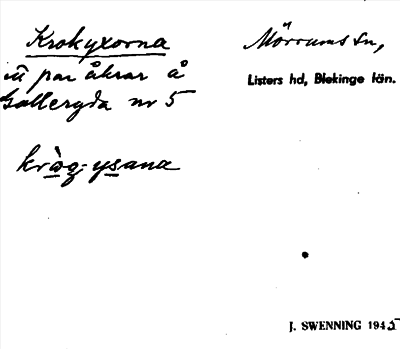 Krokyxorna
Mörrums sn,
Listers hd, Blekinge län.
par åkrar å
Galleryda nr 5
kròq-ysana
J. SWENNING 1945